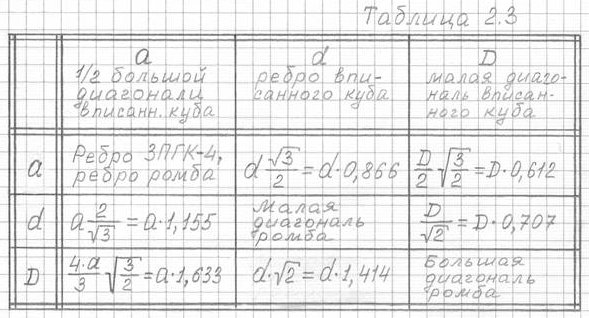 Таблица 2.3
a d D
1/2 большой диагонали вписанн. куба
ребро впи-
санного куба
малая диаго-
наль вписан-
ного куба
a
Ребро ЗПГК-4,
ребро ромба
d √3/2 = d·0,866
D/2 √(3/2) = D·0,612
d
a 2/√3 = a·1,155
Малая
диагональ
ромба
D/√2 = D·0,707
D
4·a/3 √(3/2) = a·1,633
d·√2 = d·1,414
Большая
диагональ
ромба